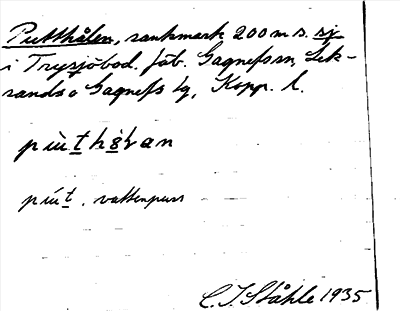 Putthålen, sankmark 200 m s. sj
i Trysjöbod. fäb. Gagnefs sn, Lek-
sands o Gagnefs tg, Kopp. l.
pùthə̀lan
pùt, vattenpuss
C. I. Ståhle 1935